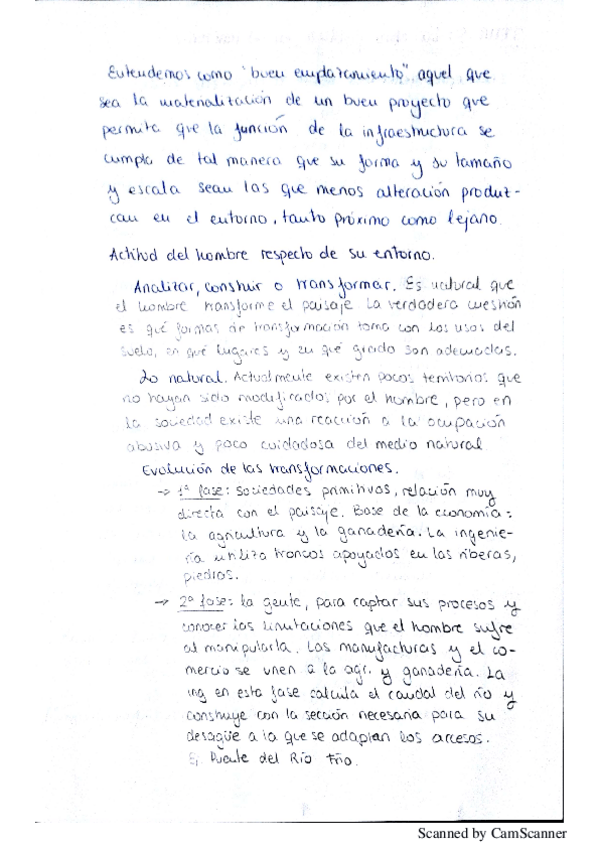 Entendemos como "buen emplazamiento", aquel que
sea la materialización de un buen proyecto que
permita que la función de la infraestructura se
cumpla de tal manera que su forma y su tamaño
y escala sean las que menos alteración produz-
can en el entorno, tanto próximo como lejano.
Actitud del hombre respecto de su entorno.
Analizar, construir o transformar. Es natural que
el hombre transforme el paisaje. La verdadera cuestión
es qué formas de transformación toma con los usos del
suelo, en qué lugares y en qué grado son adecuadas.
Lo natural. Actualmente existen pocos territorios que
no hayan sido modificados por el hombre, pero en
la sociedad existe una reacción a la ocupación
abusiva y poco cuidadosa del medio natural
Evolución de las transformaciones.
-> 1ª fase: sociedades primitivas, relación muy
directa con el paisaje. Base de la economía:
la agricultura y la ganadería. La ingenie-
ría utiliza troncos apoyados en las riberas,
piedras.
-> 2ª fase: la gente, para captar sus procesos y
conocer las limitaciones que el hombre sufre
al manipularla. Las manufacturas y el co-
mercio se unen a la agr. y ganadería. La
ing en esta fase calcula el caudal del río y
construye con la sección necesaria para su
desagüe a la que se adaptan los accesos.
Ej Puente del Río
Scanned by CamScanner